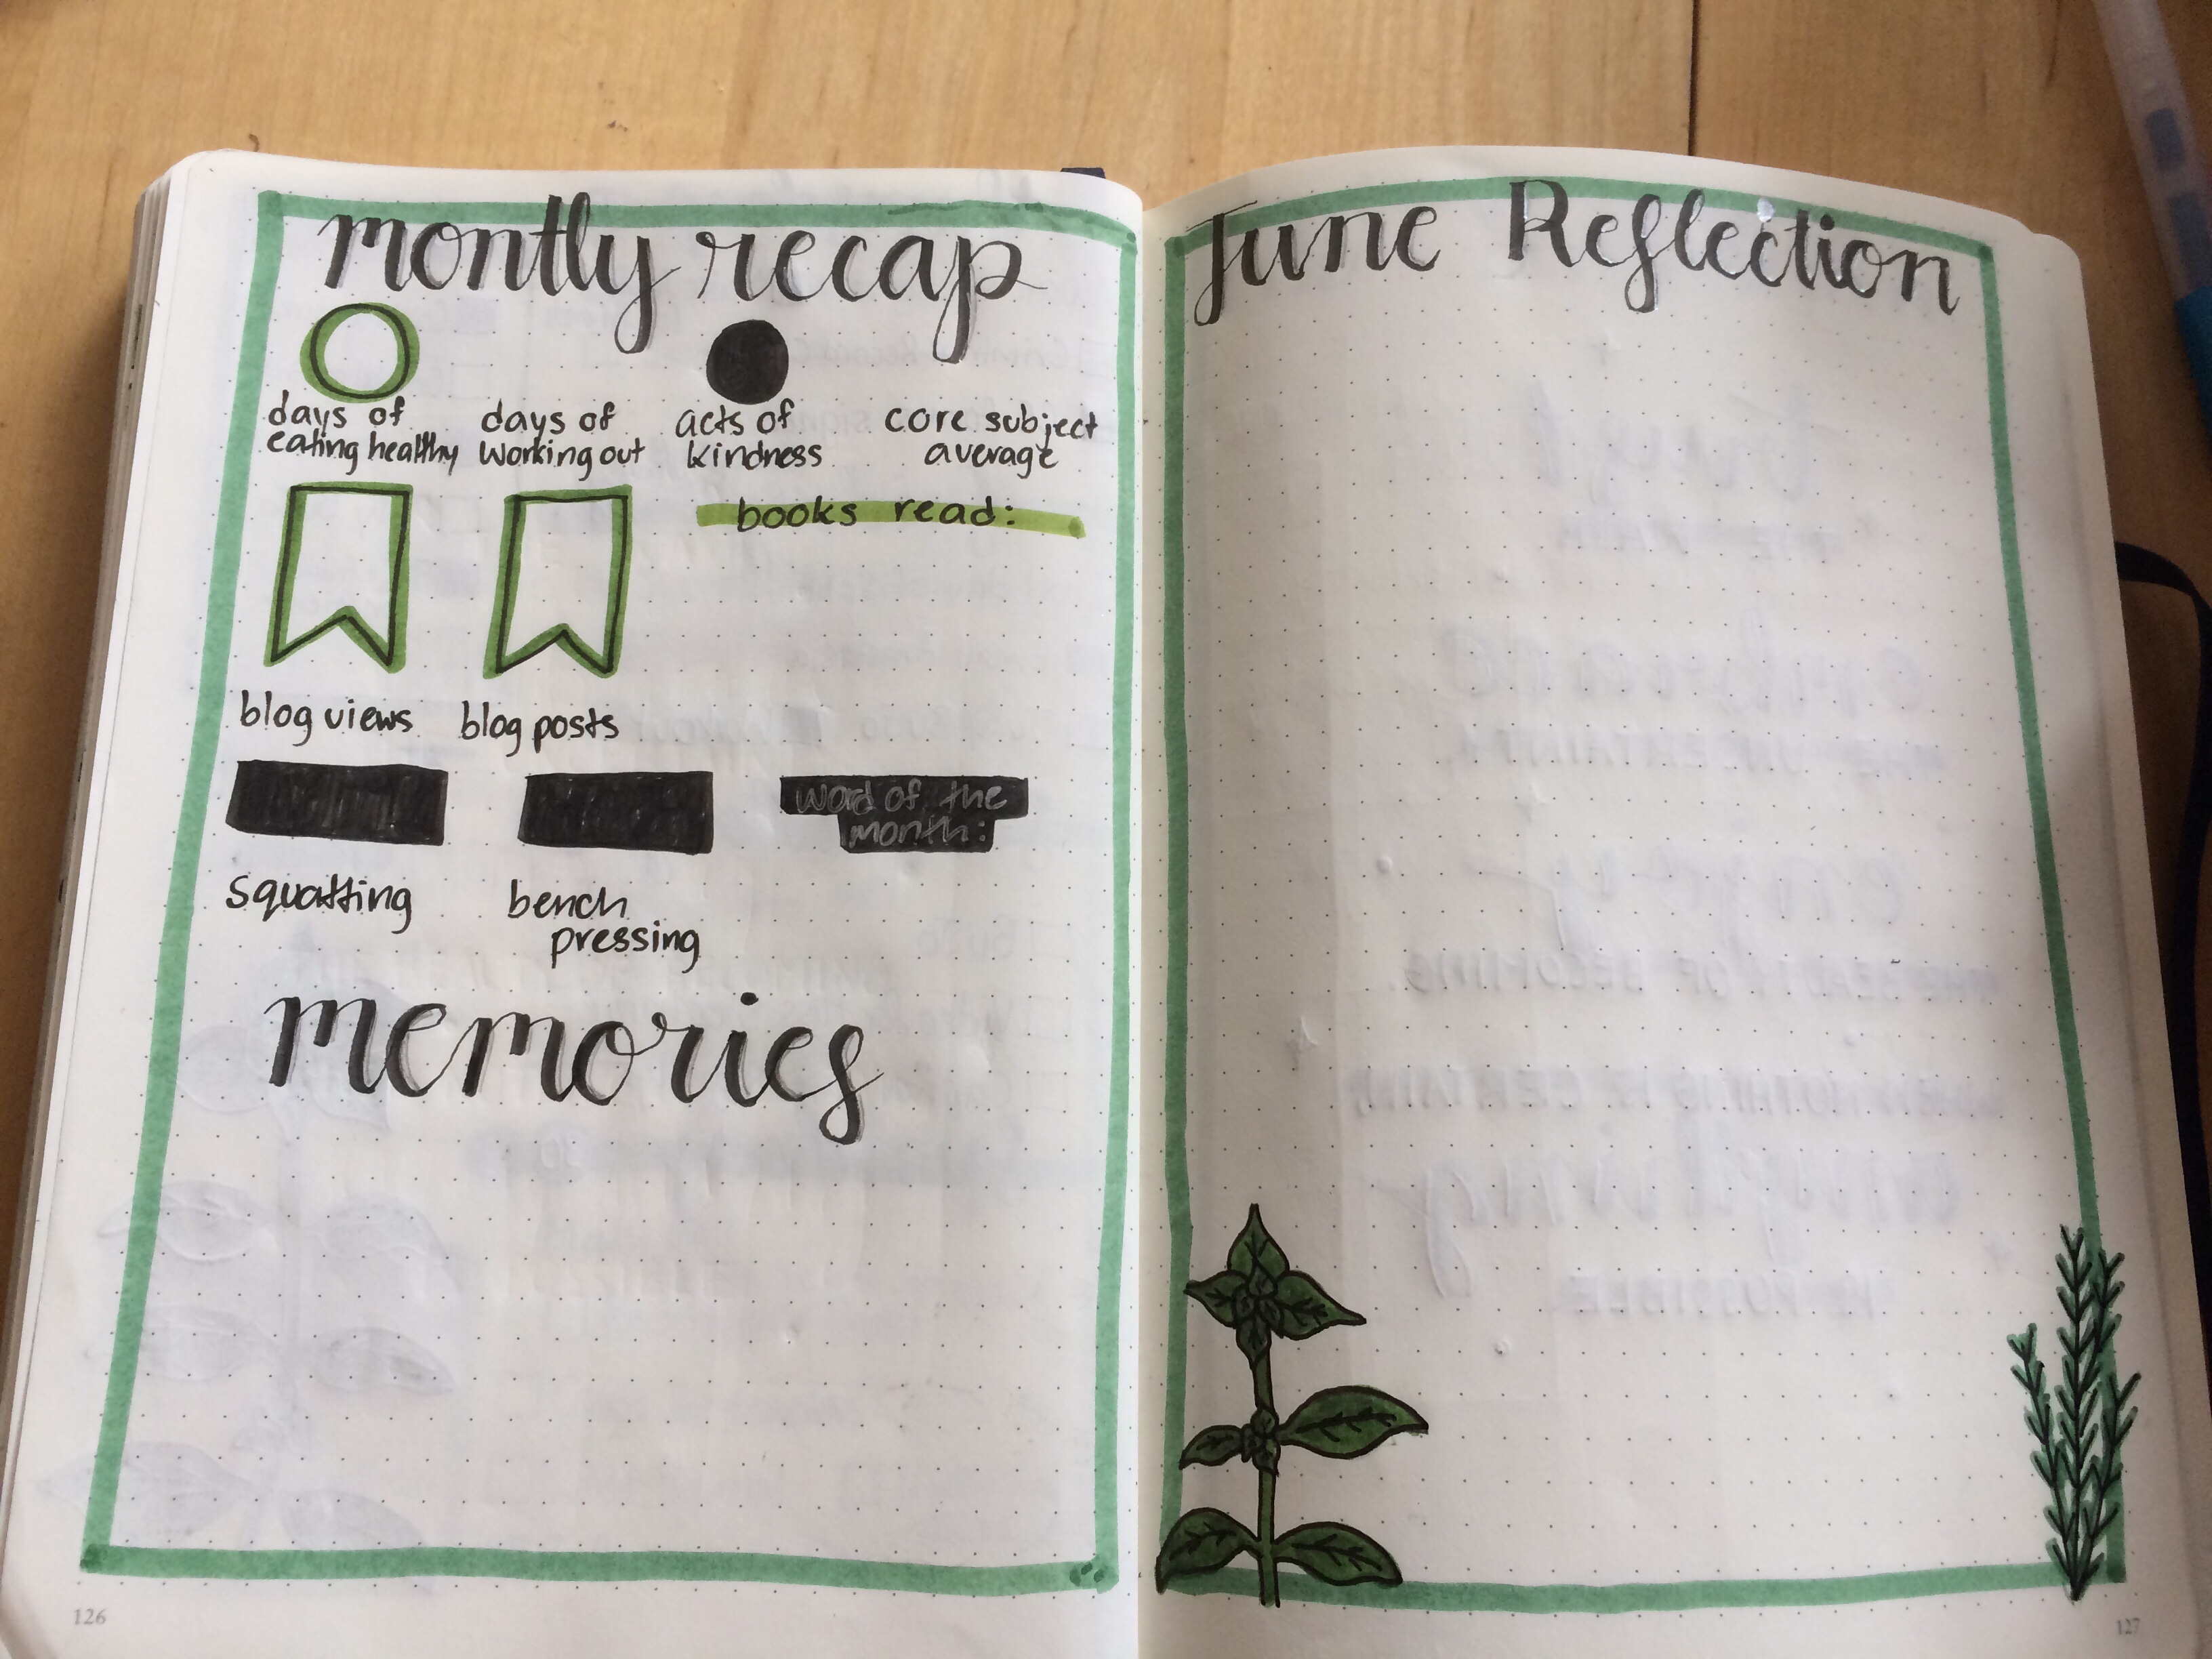 montly recap
days of
eating healthy
days of
working out
acts of
kindness
core subject
average
books read:
blog views
blog posts
word of the
month:
squatting
bench
pressing
memories
126
June Reflection
127